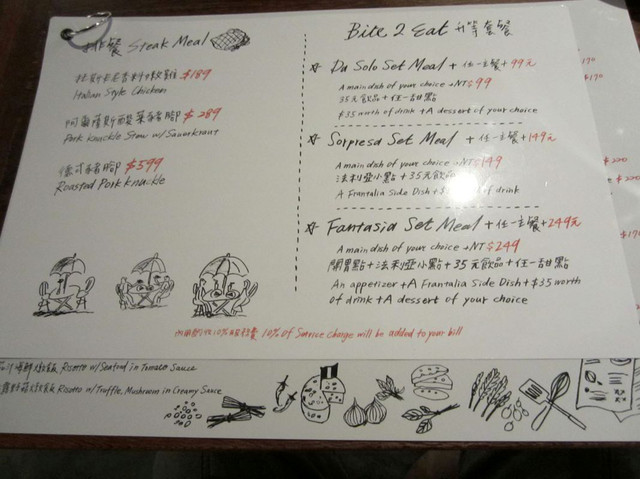 排餐 Steak Meal
$189
Italian Style Chicken
阿爾薩斯酸菜豬腳 $289
Pork Knuckle Stew w/ Sauerkraut
德式豬腳 $599
Roasted Pork Knuckle
Bite 2 Eat 升等套餐
Da Solo Set Meal + 任一主餐 + 99元
A main dish of your choice + NT$99
35元飲品 + 任一甜點
$35 worth of drink + A dessert of your choice
Sorpresa Set Meal + 任一主餐 + 149元
A main dish of your choice + NT$149
法利亞小點 + 35元飲品
A Frantalia Side Dish + of drink
Fantasia Set Meal + 任一主餐 + 249元
A main dish of your choice + NT$249
開胃點 + 法利亞小點 + 35元飲品 + 任一甜點
An appetizer + A Frantalia Side Dish + $35 worth
of drink + A dessert of your choice
10% of Service Charge will be added to your bill
燉飯 Risotto w/ Seafood in Tomato Sauce
燉飯 Risotto w/ Truffle, Mushroom in Creamy Sauce
$170
$220
$220
$170